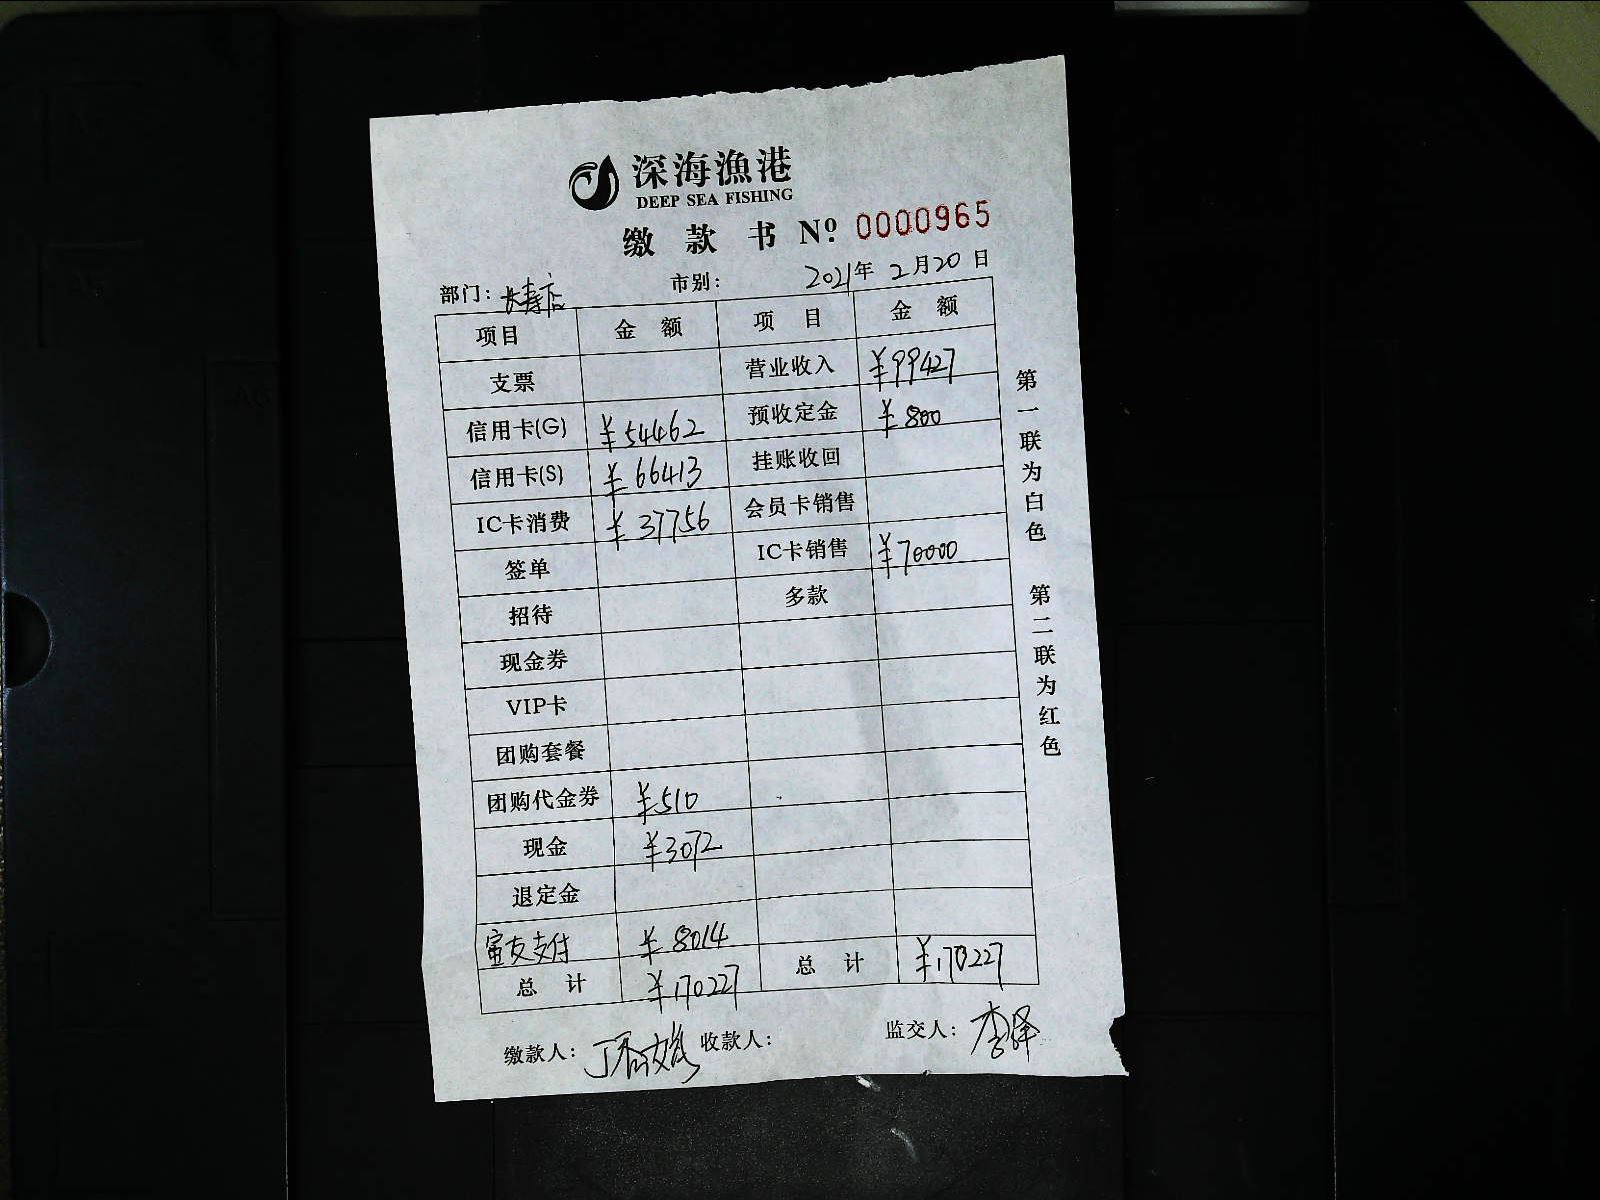 深海渔港
DEEP SEA FISHING
缴款书 Nº 0000965
部门：长寿店 市别： 2021年2月20日
项目 金额 项目 金额
支票 营业收入 ¥99427
信用卡(G) ¥54462 预收定金 ¥800
信用卡(S) ¥66413 挂账收回
IC卡消费 ¥37756 会员卡销售
签单 IC卡销售 ¥70000
招待 多款
现金券
VIP卡
团购套餐
团购代金券 ¥510
现金 ¥3072
退定金
支付 ¥8014
总计 ¥170227 总计 ¥170227
缴款人： 收款人： 监交人：李泽
第一联为白色 第二联为红色